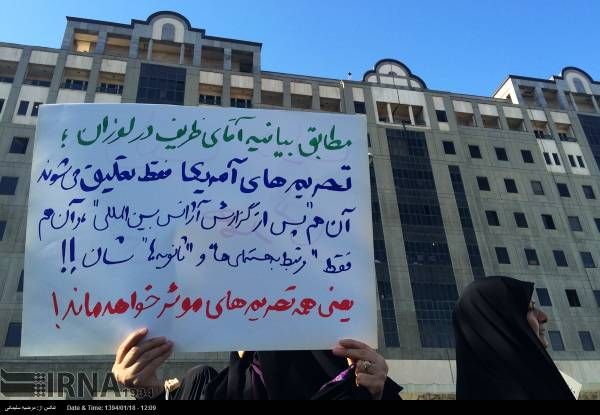 مطابق بیانیه آقای ظریف در لوزان ؛
تحریم های آمریکا فقط تعلیق می شوند
آن هم پس از گزارش آژانس بین المللی آن هم
فقط "مرتبط به هسته ای ها" و "ثانویه ها" شان !!
یعنی همه تحریم های موثر خواهد ماند !
IRNA 1934
عکس از: مرضیه سلیمانی
Date & Time: 1394/01/18 - 12:09